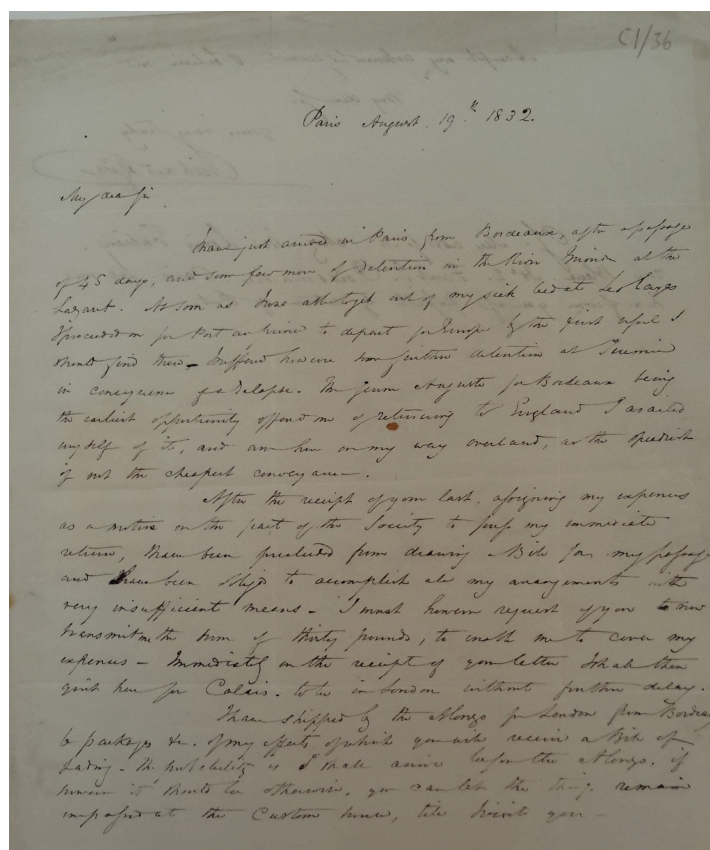 C1/36
Paris August. 19th. 1832.
My dear Sir
I have just arrived in Paris from Bordeaux, after a passage
of 45 days, and some few more of detention in the River Gironde at the
Lazaret. As soon as I was able to get out of my sick bed at Les Cayes
I proceeded on for Port au Prince to depart for Europe by the first vessel I
should find there – I suffered however some further detention at Jeremie
in consequence of a Relapse. The Jeune Auguste for Bordeaux being
the earliest opportunity offered me of returning to England I availed
myself of it, and am here on my way overland, as the speediest
if not the cheapest conveyance –.
After the receipt of your last, assigning my expenses
as a motive on the part of the Society to press my immediate
return, I have been precluded from drawing a Bill for my passage
and I have been obliged to accomplish all my arrangements with
very insufficient means – I must however request of you to now
transmit me the sum of thirty pounds, to enable me to cover my
expenses – Immediately on the receipt of your letter I shall then
quit here for Calais. to be in London without further delay.
I have shipped by the Alonzo for London from Bordeaux
6 packages &c. of my effects of which you will receive a Bill of
Lading – The probability is I shall arrive before the Alonzo. if
however it should be otherwise, you can let the things remain
at the Custom house, till I visit you –